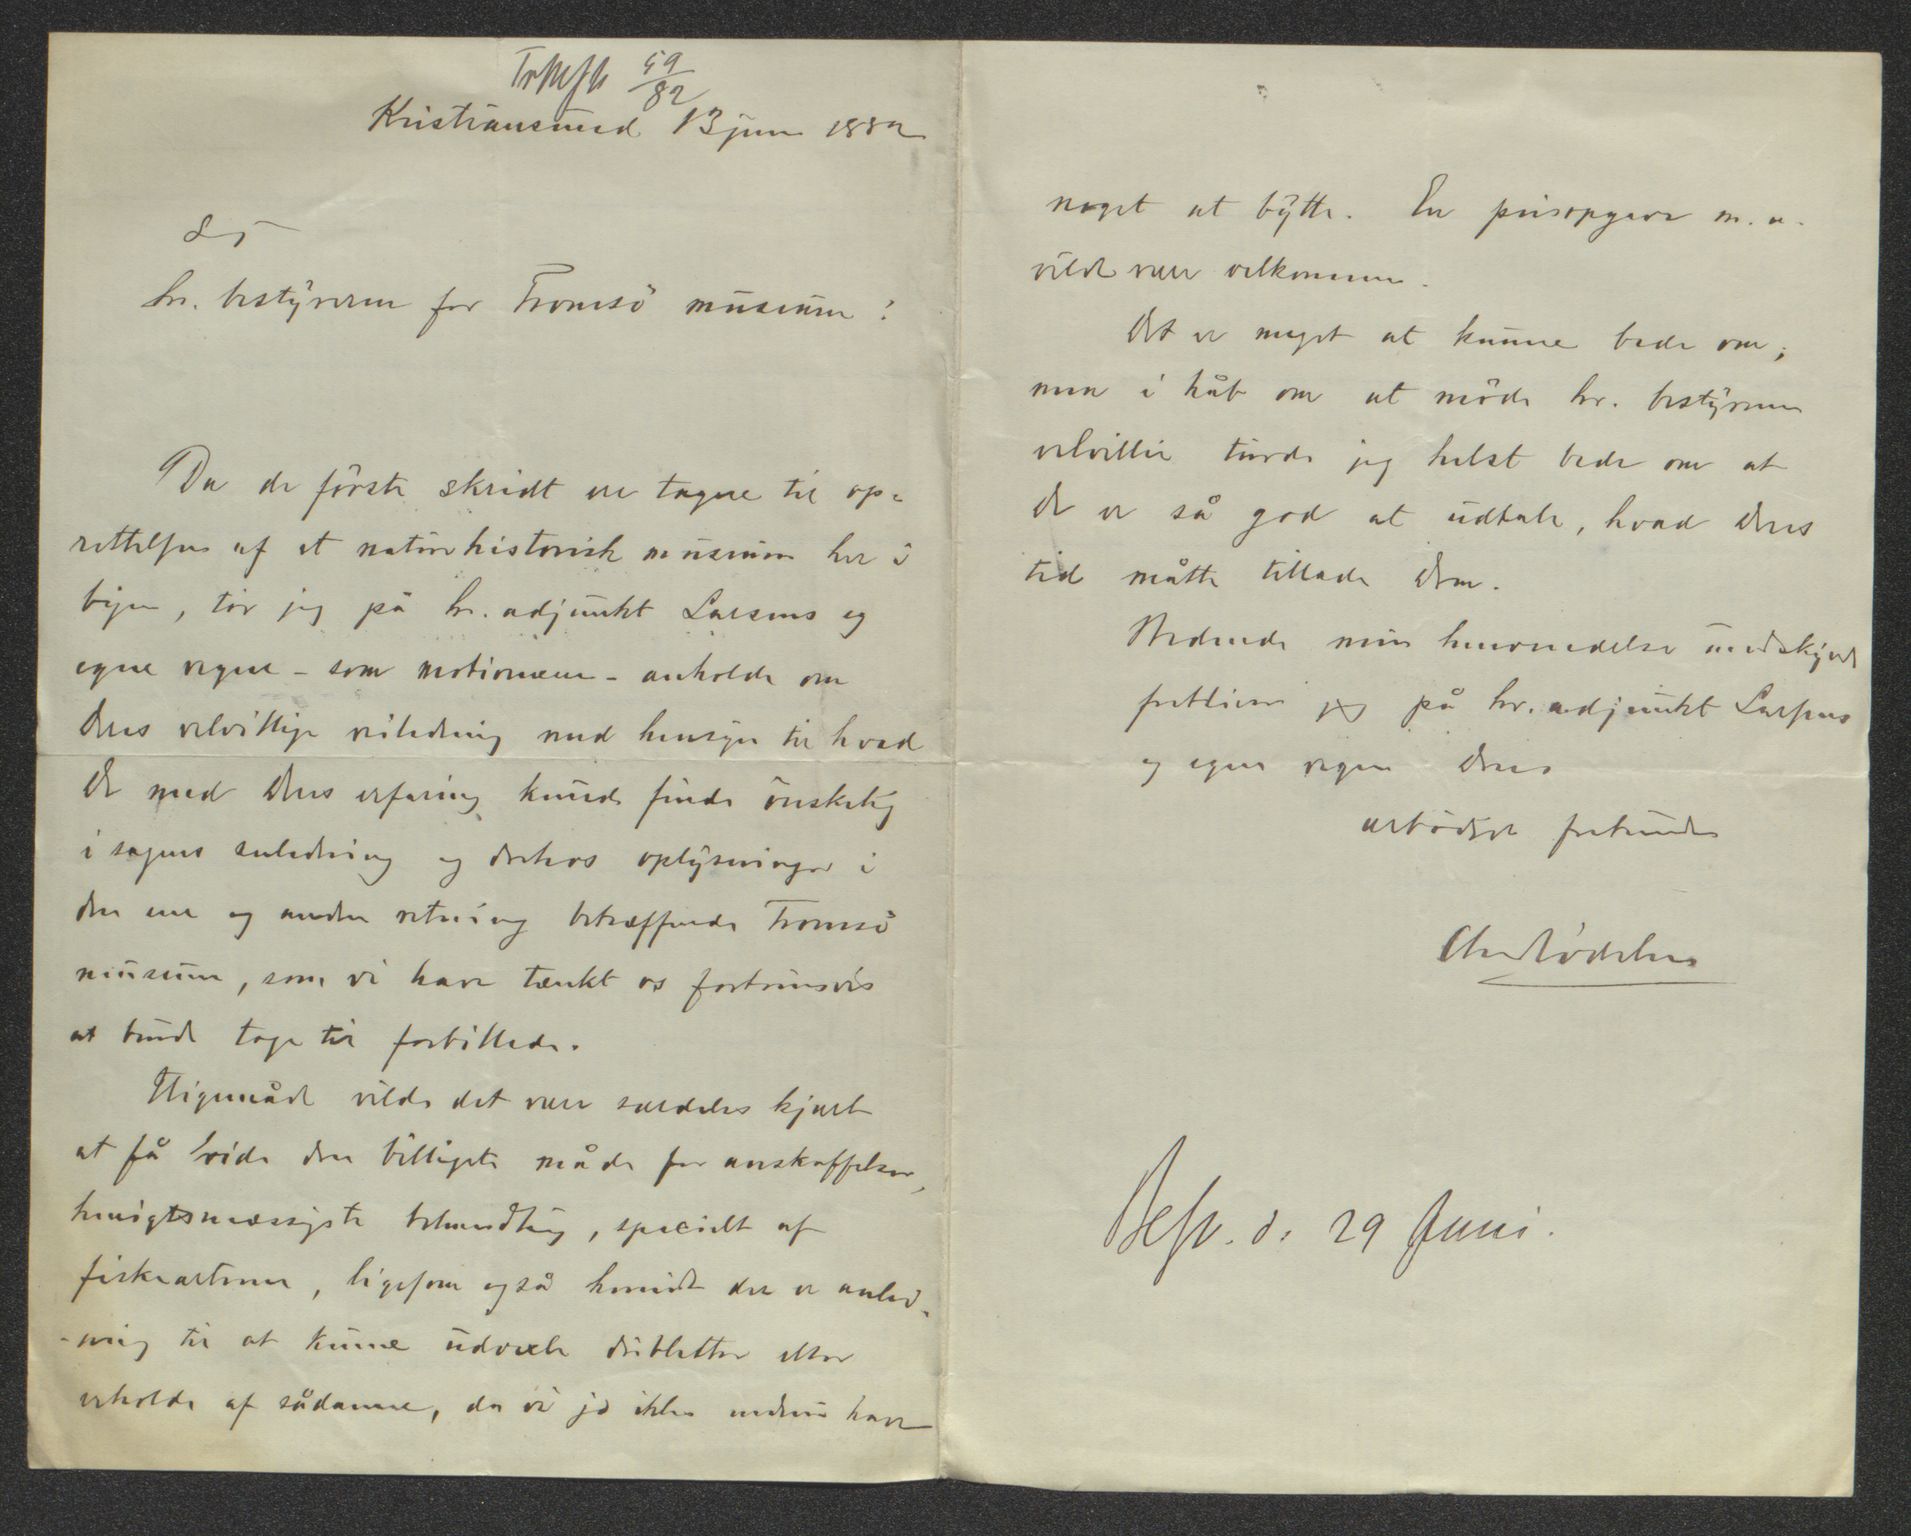 59/82
Kristiansund 13 juni 1882
S. T.
hr. bestyreren for Tromsö museum!
Da de förste skridt ere tagne til op-
rettelsen af et naturhistorisk museum her i
byen, tör jeg på hr. adjunkt Larsens og
egne vegne - som motionærer - anholde om
Deres velvillige veiledning med hensyn til hvad
De med Deres erfaring kunde finde önskelig
i sagens anledning og derhos oplysninger i
den ene og anden retning betræffende Tromsö
museum, som vi have tænkt os fortrinsvis
at burde tage til forbillede.
Ligemåde vilde det være særdeles kjært
at få vide den billigste måde for anskaffelser,
hensigtsmæssigste behandling, specielt af
fiskearterne, ligesom også hvorvidt der er anled-
-ning til at kunne udvexle dubletter eller
erholde af sådanne, da vi jo ikke endnu have
noget at bytte. En prisopgave m. a.
vilde være velkommen.
Det er meget at kunne bede om;
men i håb om at möde hr. bestyreren
velvillie turde jeg helst bede om at
De er så god at udtale, hvad Deres
tid måtte tillade Dem.
Bedende min henvendelse undskyldt
forbliver jeg på hr. adjunkt Larsens
og egne vegne Deres
ærbödigst forbundne
Chr Rödelien
Besv. d. 29 Juni.